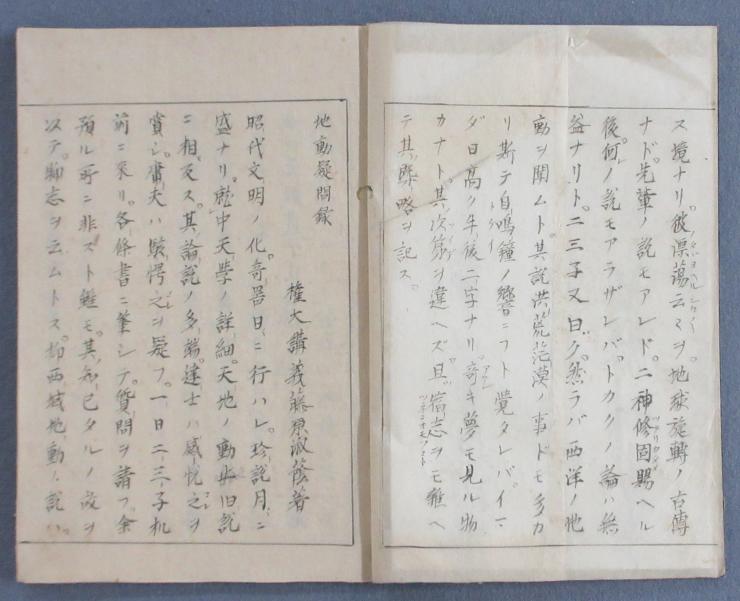 ス境ナリ。彼漂蕩云々ヲ。地球旋轉ノ古傳
ナド。先輩ノ説モアレド。二神修固賜ヘル
後。何ノ説モアラザレバ。トカクノ論ハ無
益ナリト。二三子又曰ク。然ラバ西洋ノ地
動ヲ聞ムト。其説洪荒茫漠ノ事ドモ多カ
リ斯テ自鳴鐘ノ響ニフト覺タレバ。イマ
ダ日高ク午後二字ナリ。奇キ夢モ見ル物
カナト。其次第ヲ違ヘズ。且宿志ヲモ雜ヘ
テ其槩略ヲ記ス。
地動疑問録
權大講義藤原淑蔭著
昭代文明ノ化。奇器日ニ行ハレ。珍説月ニ
盛ナリ。就中天學ノ詳細。天地ノ動止旧説
ニ相反ス。其論説ノ多端。達士ハ感悦之ヲ
賞シ。庸夫ハ駭愕之ヲ疑フ。一日二三子机
前ニ来リ。各條書ニ筆シテ。質問ヲ請フ。余
預ル所ニ非スト雖モ。其知已タルノ故ヲ
以テ。鄙志ヲ云ムトス。抑西域地動ノ説ハ。